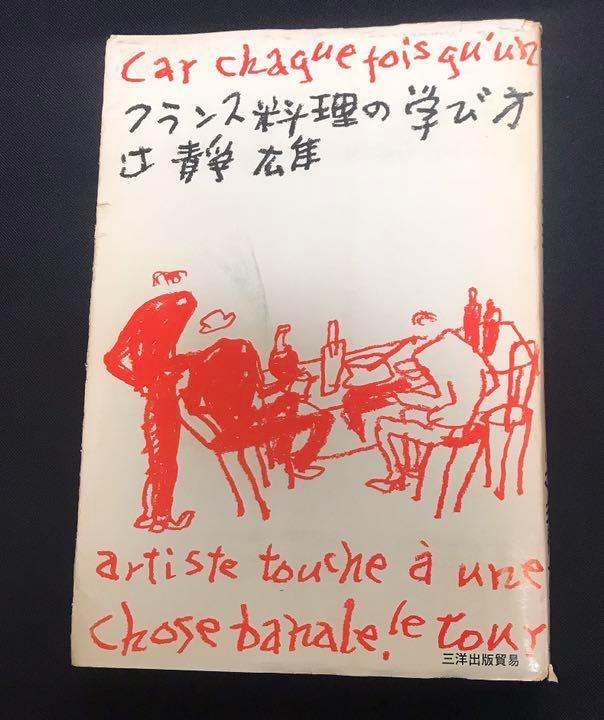 Car chaque fois qu'un
フランス料理の学び方
辻静雄
artiste touche à une
chose banale, le tour
三洋出版貿易